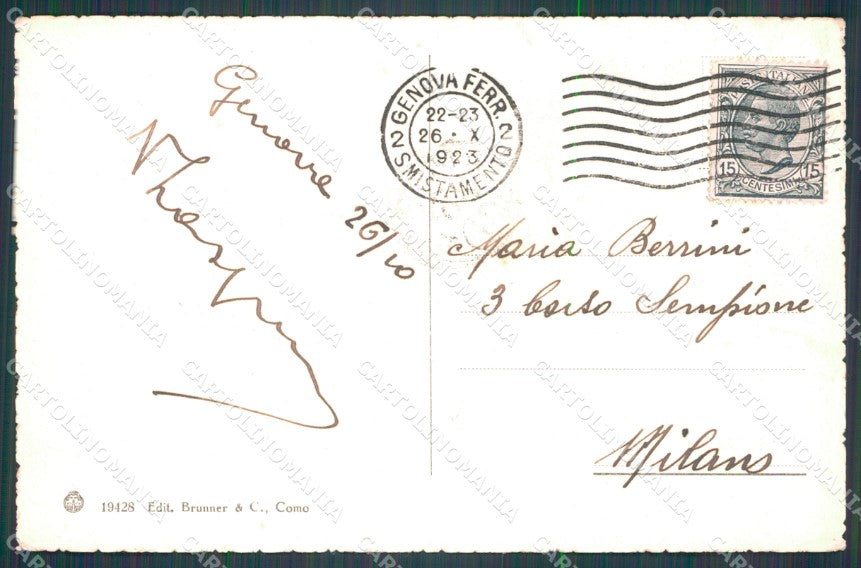 Genova 26/10
GENOVA FERR.
22-23
26 · X
1923
2 SMISTAMENTO 2
15 15
CENTESIMI
Maria Berrini
3 Corso Sempione
Milano
19428 Edit. Brunner & C., Como
CARTOLINOMANIA